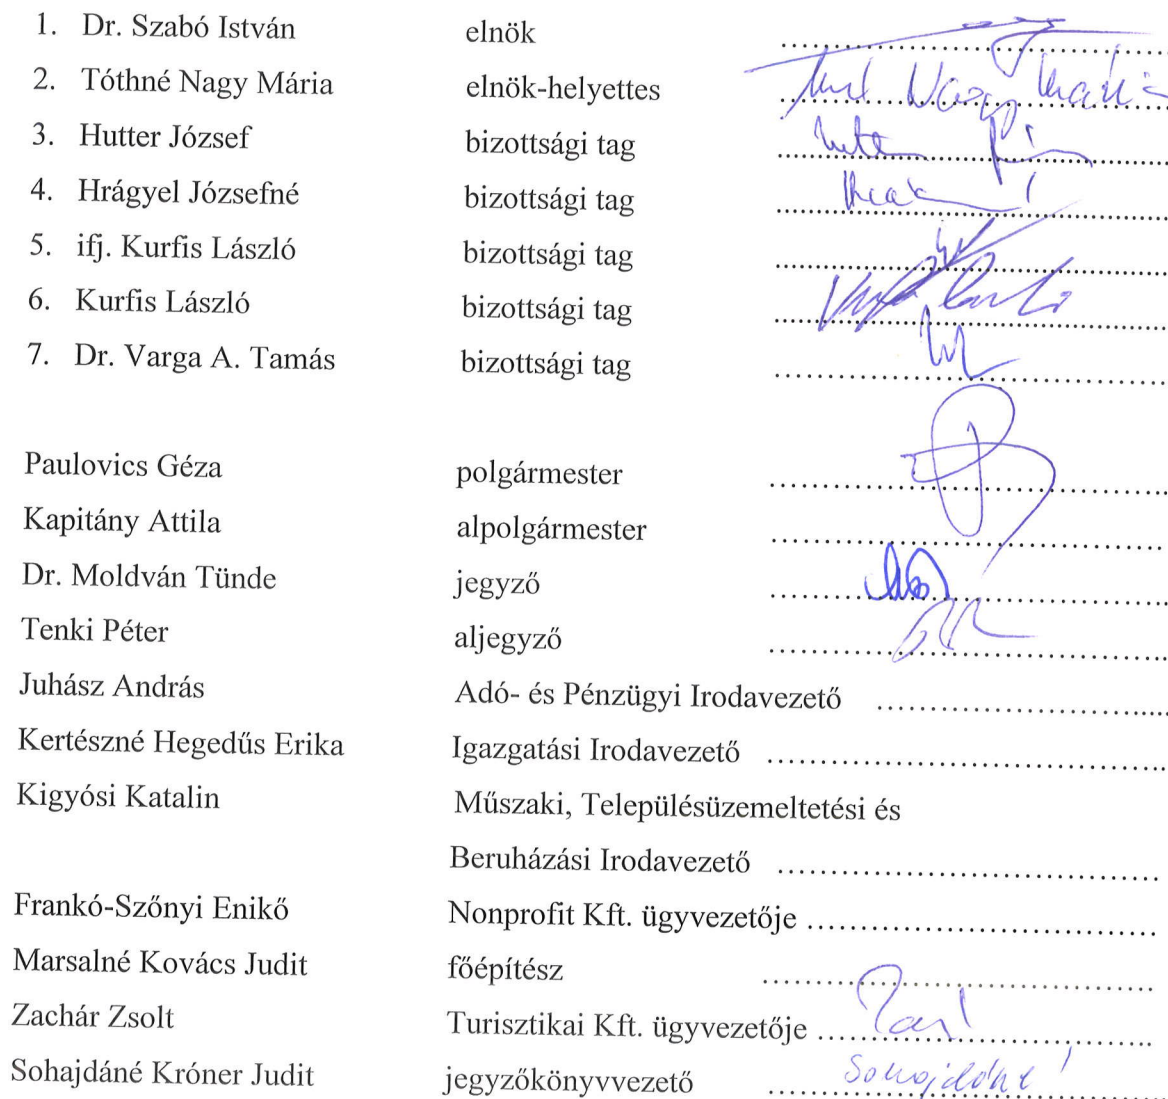 1. Dr. Szabó István elnök ........................................
2. Tóthné Nagy Mária elnök-helyettes ........................................ Nagy Mária
3. Hutter József bizottsági tag ........................................
4. Hrágyel Józsefné bizottsági tag ........................................
5. ifj. Kurfis László bizottsági tag ........................................
6. Kurfis László bizottsági tag ........................................
7. Dr. Varga A. Tamás bizottsági tag ........................................
Paulovics Géza polgármester ........................................
Kapitány Attila alpolgármester ........................................
Dr. Moldván Tünde jegyző ........................................
Tenki Péter aljegyző ........................................
Juhász András Adó- és Pénzügyi Irodavezető ........................................
Kertészné Hegedűs Erika Igazgatási Irodavezető ........................................
Kigyósi Katalin Műszaki, Településüzemeltetési és
Beruházási Irodavezető ........................................
Frankó-Szőnyi Enikő Nonprofit Kft. ügyvezetője ........................................
Marsalné Kovács Judit főépítész ........................................
Zachár Zsolt Turisztikai Kft. ügyvezetője ........................................
Sohajdáné Króner Judit jegyzőkönyvvezető ........................................ Sohajdáné